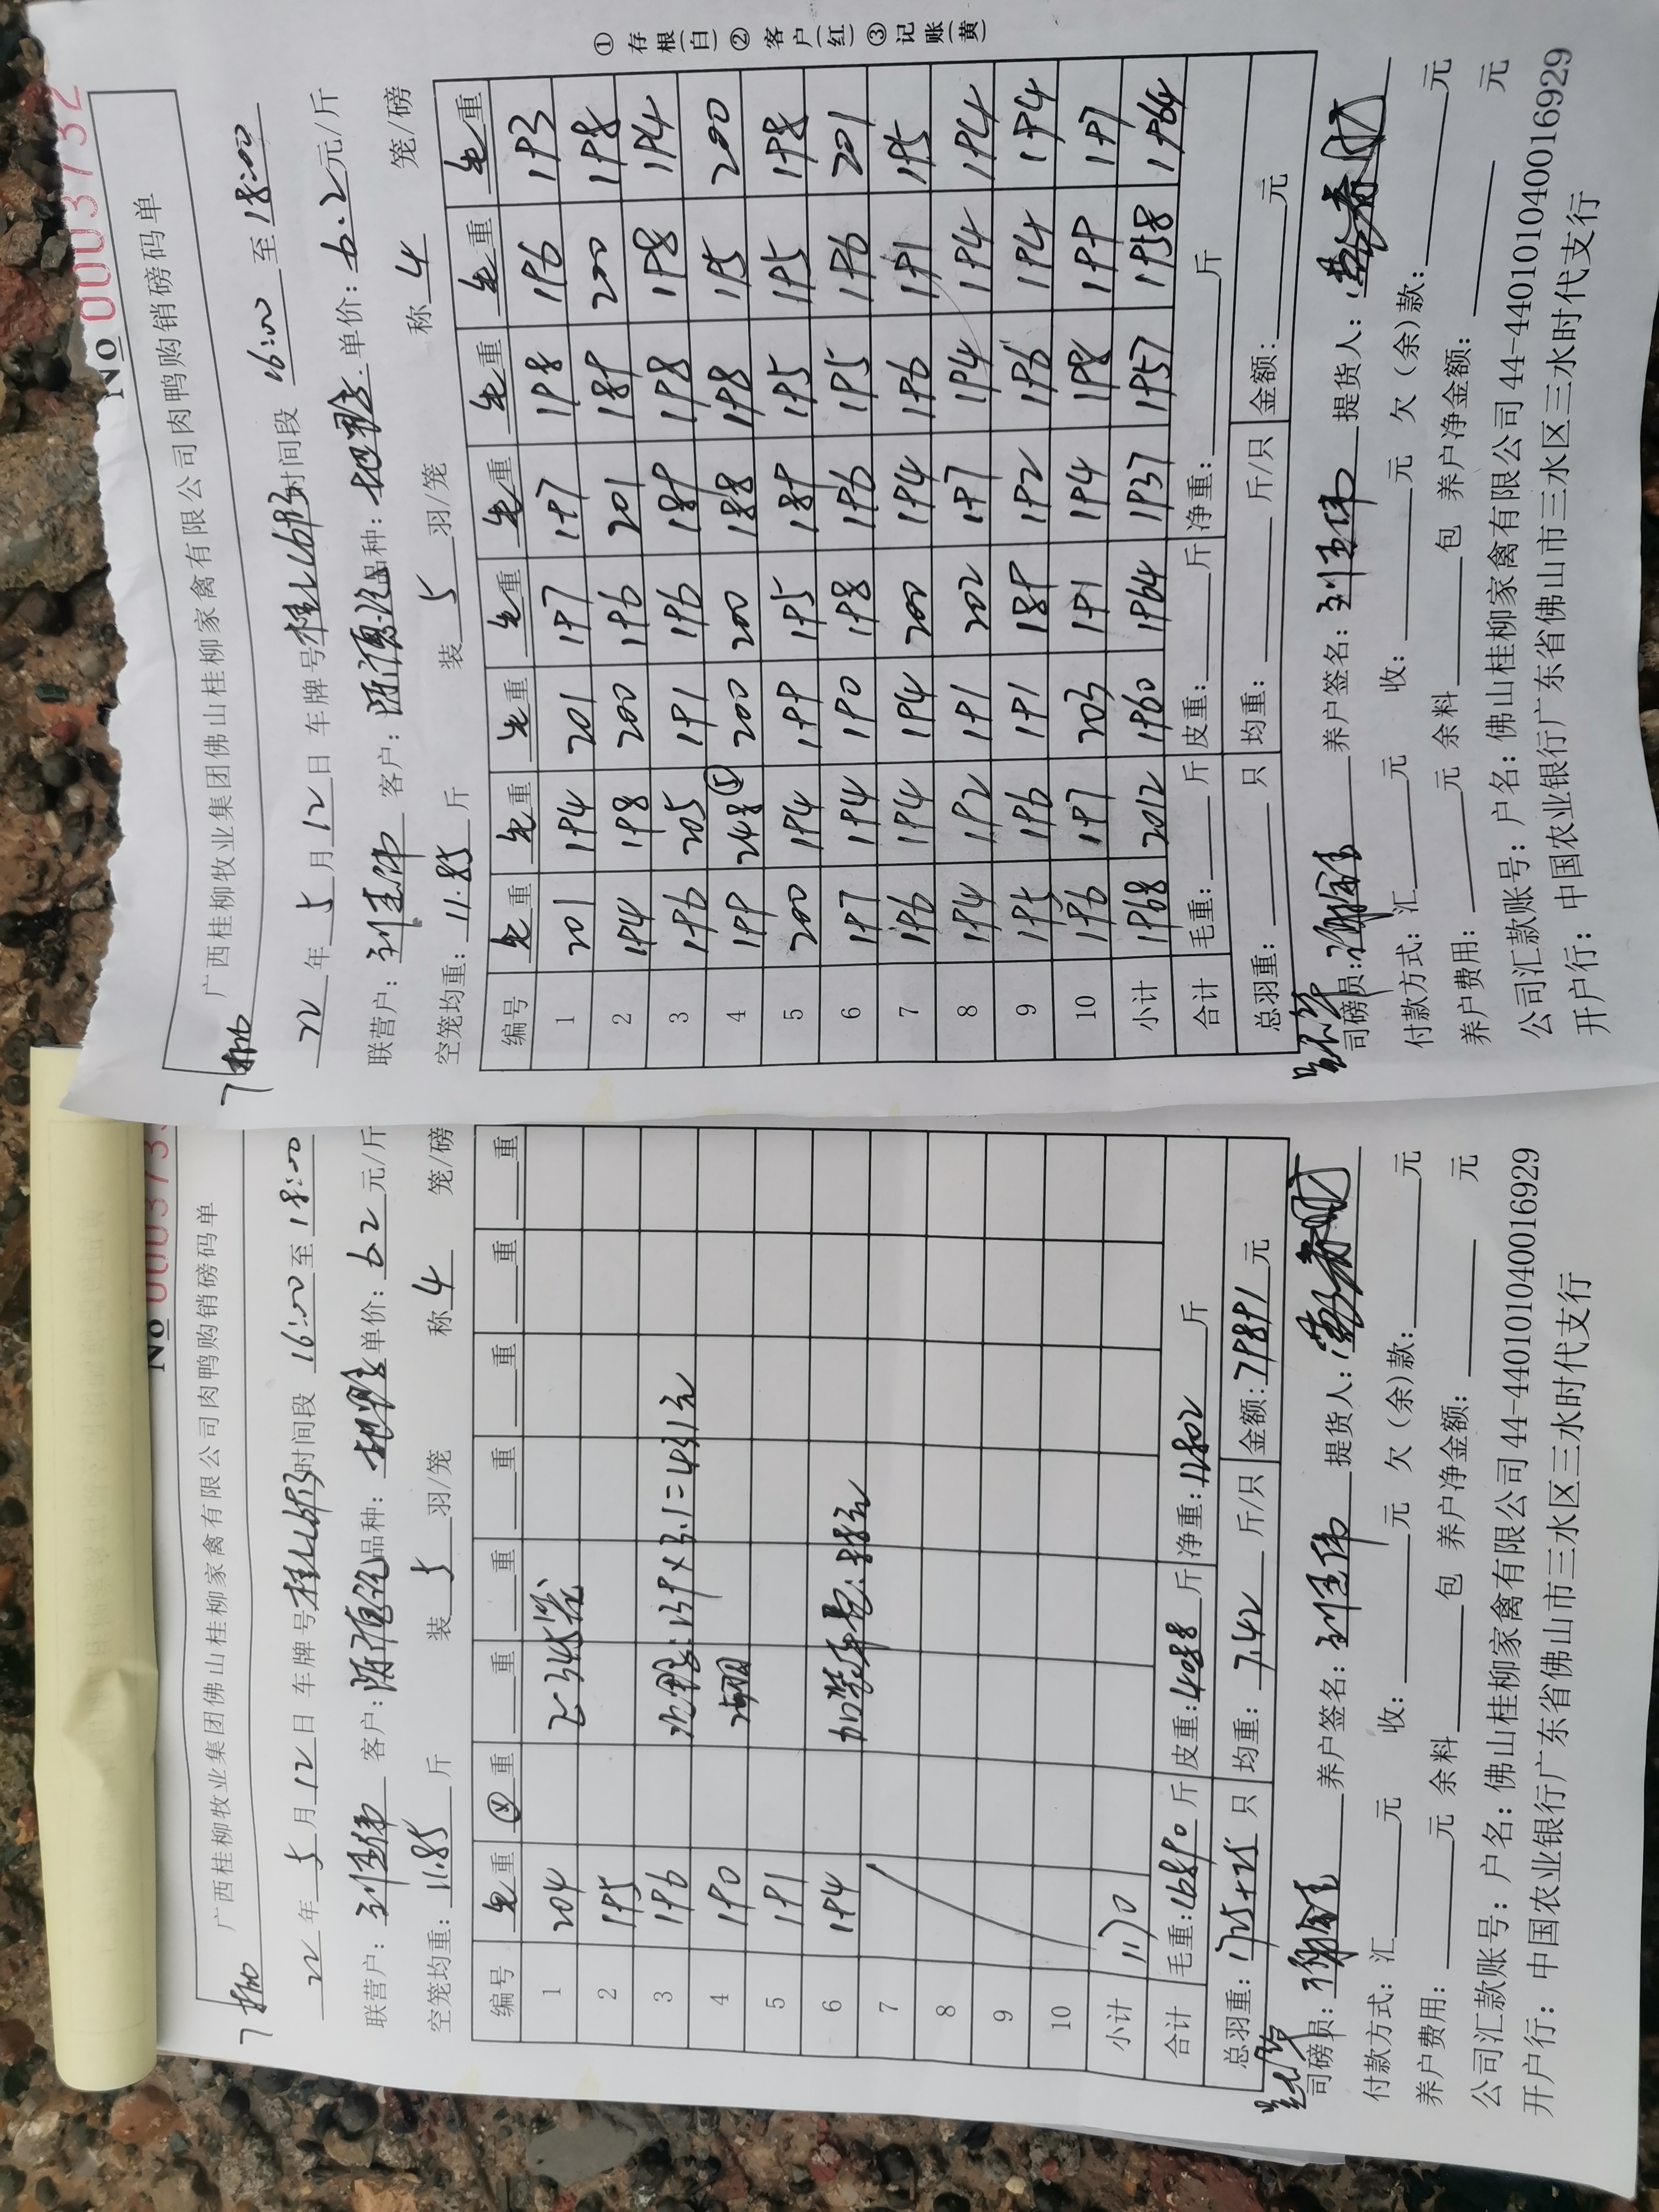 No 0003732
广西桂柳牧业集团佛山桂柳家禽有限公司肉鸭购销磅码单
22年5月12日 车牌号 时间段 16:00至18:00
联营户: 客户: 品种: 单价:6.2元/斤
空笼均重:11.85斤 装5羽/笼 称4笼/磅
编号 毛重 毛重 毛重 毛重 毛重 毛重 毛重 毛重
1 201 194 201 197 197 198 196 193
2 194 198 200 196 201 189 200 198
3 196 205 191 196 189 198 198 194
4 199 248⑤ 200 200 188 198 195 200
5 200 194 199 195 189 195 195 198
6 197 194 190 198 196 195 196 201
7 196 194 194 200 194 196 191 195
8 194 192 191 202 197 194 194 194
9 195 196 191 189 192 196 194 194
10 196 197 203 191 194 198 199 197
小计 1968 2012 1960 1964 1937 1957 1958 1964
合计 毛重: 斤 皮重: 斤 净重: 斤
总羽重: 只 均重: 斤/只 金额: 元
司磅员: 养户签名: 提货人:
付款方式:汇 元 收: 元 欠(余)款: 元
养户费用: 元 余料 包 养户净金额: 元
公司汇款账号: 户名: 佛山桂柳家禽有限公司 44-440101040016929
开户行: 中国农业银行广东省佛山市三水区三水时代支行
①存根(白)②客户(红)③记账(黄)
No 000373
广西桂柳牧业集团佛山桂柳家禽有限公司肉鸭购销磅码单
22年5月12日 车牌号 时间段 16:00至18:00
联营户: 客户: 品种: 单价:6.2元/斤
空笼均重:11.85斤 装5羽/笼 称4笼/磅
编号 毛重 ②重 重 重 重 重 重 重
1 204 345笼
2 195
3 196 139×3.1=431元
4 190 25羽
5 191
6 194 加装车费:88元
7
8
9
10
小计 1170
合计 毛重:16890斤 皮重:4088斤 净重:12802斤
总羽重:1725+25只 均重:7.42斤/只 金额:79891元
司磅员: 养户签名: 提货人:
付款方式:汇 元 收: 元 欠(余)款: 元
养户费用: 元 余料 包 养户净金额: 元
公司汇款账号: 户名: 佛山桂柳家禽有限公司 44-440101040016929
开户行: 中国农业银行广东省佛山市三水区三水时代支行